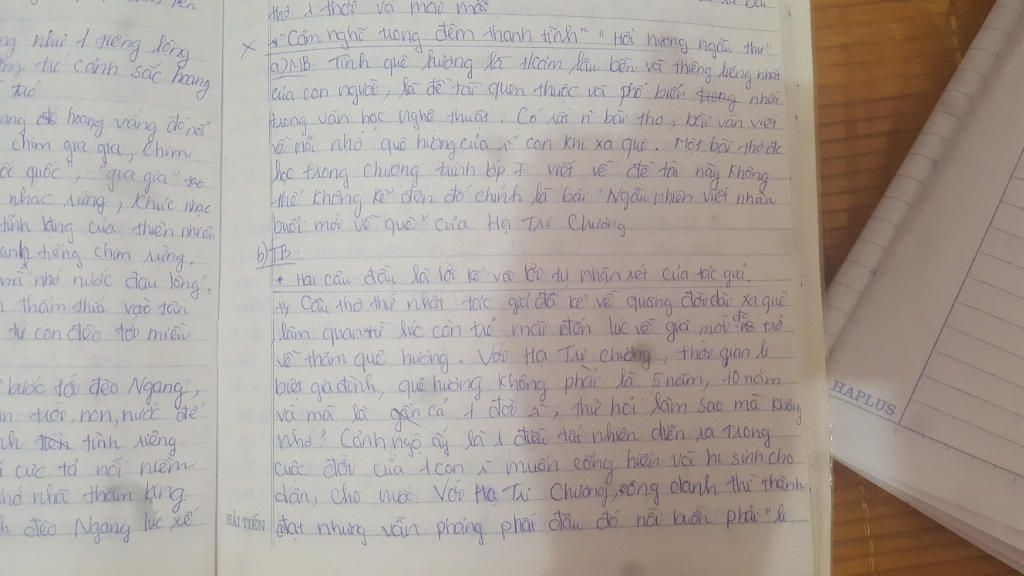 ng như 1 tiếng lòng
ng tư cảnh sắc hoang
ang hoang vắng đó nổi
chim gia gia, chim
ốc quốc, "gia gia" tạo
nhạc rừng, khúc nhạc
tĩnh lặng của thiên nhiên
anh tiếng chim rừng.
mà nhớ nước đau lòng",
thấm thía vào tâm
từ con đèo tới miền
bước tới đèo Ngang",
trời, non, nước để
tình riêng
cực tả nỗi niềm
nhớ nhà thầm lặng
h đèo Ngang lúc xế
thơ 1 thời và mãi mãi
x + "Cảm nghĩ trong đêm thanh tĩnh" "Hồi hương ngẫu thư"
a) MB. Tình quê hương là t/cảm lâu bền và thiêng liêng nhất
của con người, là đề tài quen thuộc và phổ biến nhất
trong văn học nghệ thuật. Có rất n` bài thơ, bài văn viết
về nỗi nhớ quê hương của con khi xa quê. Một bài thơ đc
học trong chương trình lớp 7 viết về đề tài này không
thể không kể đến đó chính là bài "Ngẫu nhiên viết nhân
buổi mới về quê" của Hạ Tri Chương.
b) TB.
+ Hai câu đầu là lời kể và lời tự nhận xét của tác giả.
Câu thơ thứ nhất tác giả đã kể về quãng đời dài xa quê
làm quan từ lúc còn trẻ mãi đến lúc về già mới đc trở
về thăm quê hương. Với Hạ Tri Chương, thời gian li
biệt gia đình, quê hương không phải là 5 năm, 10 năm
và mà là gần cả 1 đời, thử hỏi làm sao mà không
nhớ? Cảnh ngộ ấy là 1 điều tất nhiên diễn ra trong
cuộc đời của 1 con muốn cống hiến và hi sinh cho
dân, cho nước. Với Hạ Tri Chương, công danh thì thành
đạt nhưng vẫn phảng phất đâu đó nỗi buồn phải "li
HẢI TIẾN
HAPLUS